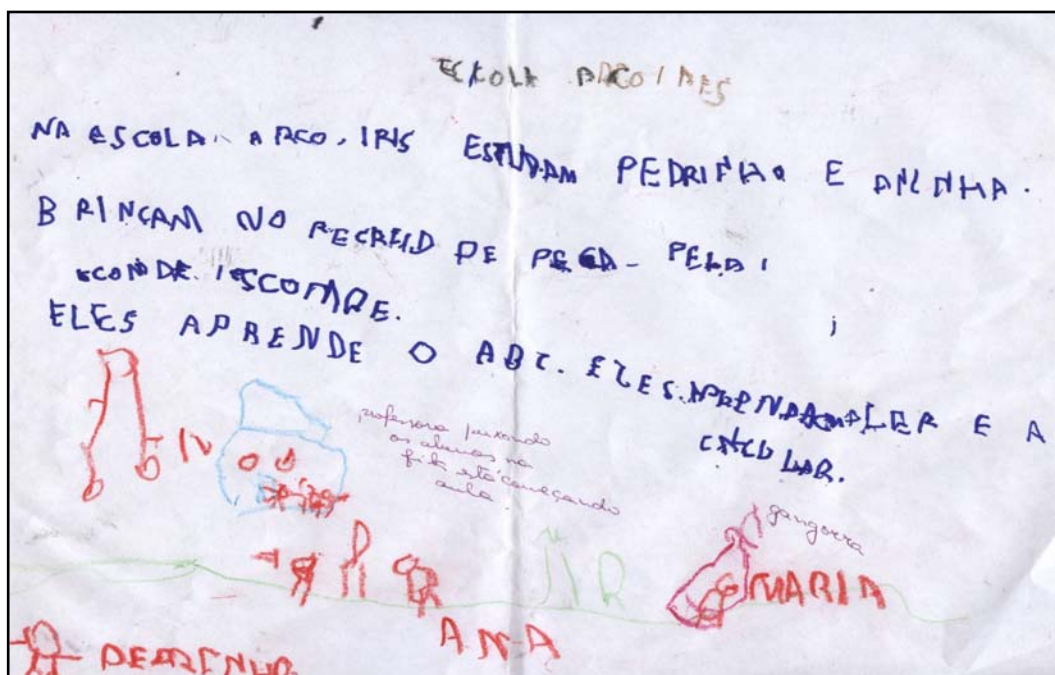 ESCOLA ARCO IRES
NA ESCOLA. ARCO. IRIS ESTUDAM PEDRINHO E ANINHA.
BRINCAM NO RECREIO DE PEGA- PEGA I
ESCONDE. I ESCONDE.
ELES APRENDE O ABC. ELES. A LER E A
CALCULAR.
professora puxando
os alunos na
fila está começando
aula
gangorra
MARIA
ANA
PEDRINHO